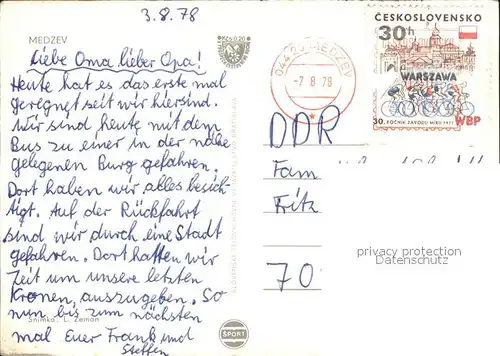 3.8.78
MEDZEV
Liebe Oma lieber Opa!
Heute hat es das erste mal
geregnet seit wir hiersind.
Wir sind heute mit dem
Bus zu einer in der nähe
gelegenen Burg gefahren.
Dort haben wir alles besich-
tigt. Auf der Rückfahrt
sind wir durch eine Stadt
gefahren. Dort hatten wir
Zeit um unsere letzten
Kronen, auszugeben. So
nun bis zum nächsten
mal Euer Frank und
Steffen
Snímka: L. Zeman
ŠPORT
044 25 MEDZEV
-7.8.78
ČESKOSLOVENSKO
30h
WARSZAWA
30. ROČNÍK ZÁVODU MÍRU 1977
WBP
DDR
Fam
Fritz
70
privacy protection
Datenschutz